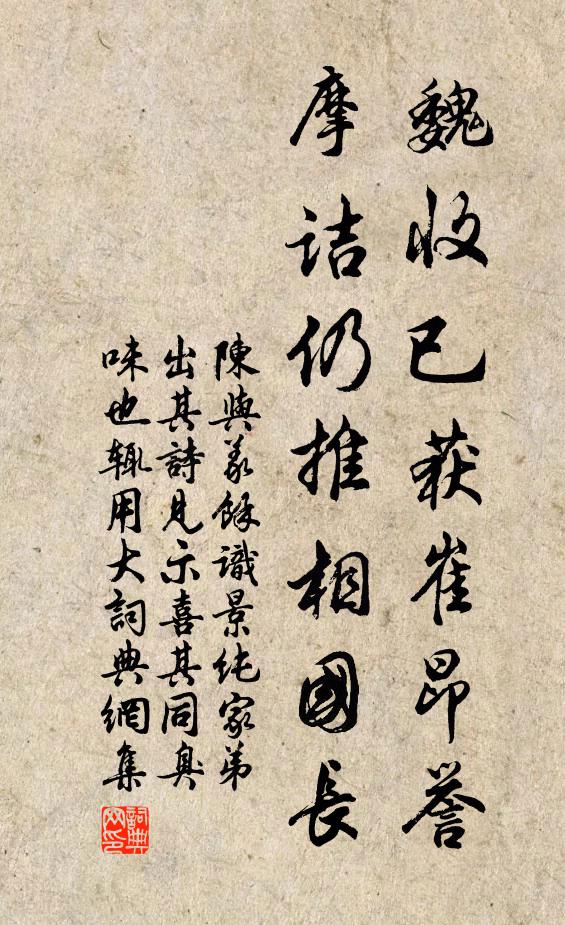 魏收已获崔昂誉
摩诘仍推相國長
陳與義餘識景纯家弟
出其詩見示喜其同臭
味也辄用大詞典網集
詞典网印